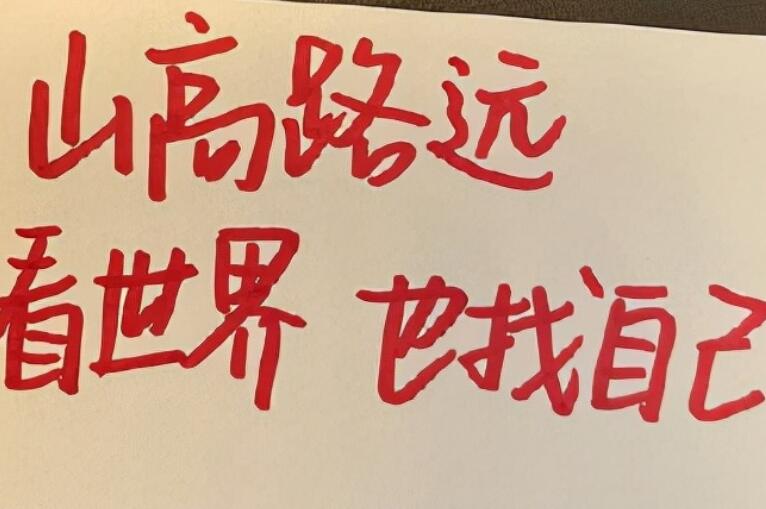 山高路远
看世界 也找自己